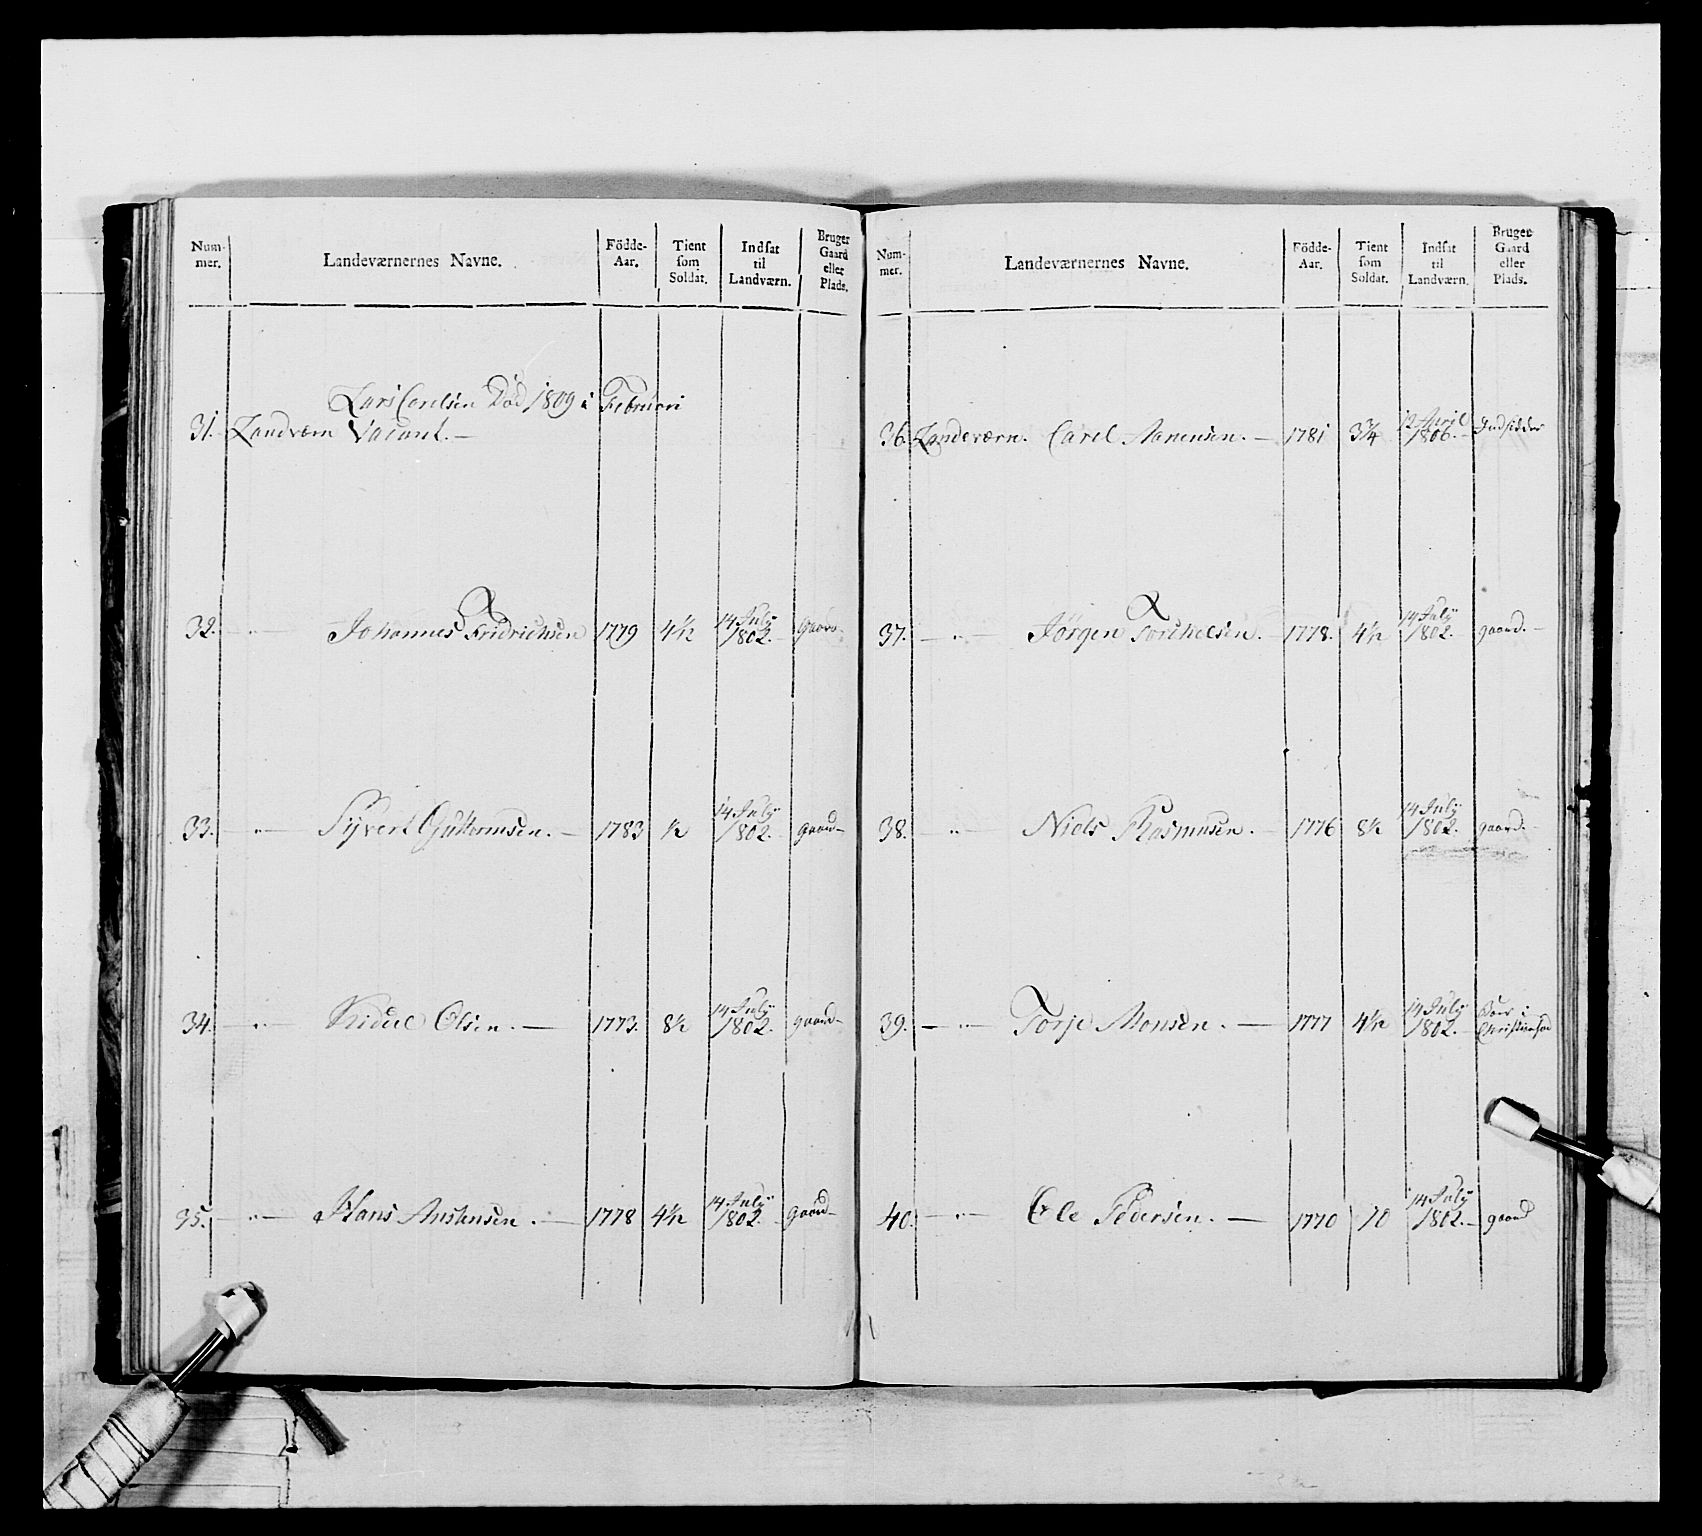 Num-
mer.
Landeværnernes Navne.
Födde-
Aar.
Tient
som
Soldat.
Indsat
til
Landværn.
Bruger
Gaard
eller
Plads.
Lars Carelsen Død 1809 i Februari
31. Landværn Vacant. —
32. — „ — Johannes Fridrichsen 1779 4½ 14 July 1802. gaard
33. — „ — Syvert Guttormsen. — 1783 ½ 14 July 1802. gaard —
34. — „ — Kidiel Olsen. — 1773. 8½ 14 July 1802. gaard —
35. — „ — Hans Anstensen. — 1778 4½ 14 July 1802. gaard —
Num-
mer.
Landeværnernes Navne.
Födde-
Aar.
Tient
som
Soldat.
Indsat
til
Landværn.
Bruger
Gaard
eller
Plads.
36. Landeværn. Carel Aanensen. — 1781 3¾ 12 April 1806. — Indsidder
37. — „ — Jørgen Torkelsen. — 1778. 4½ 14 July 1802. gaard. —
38. — „ — Niels Rasmusen. — 1776 8½ 14 July 1802. gaard. —
39. — „ — Torje Monsen. — 1777 4½ 14 July 1802. — Boer i
40. — „ — Ole Pedersen. — 1770 10 14 July 1802. — gaard